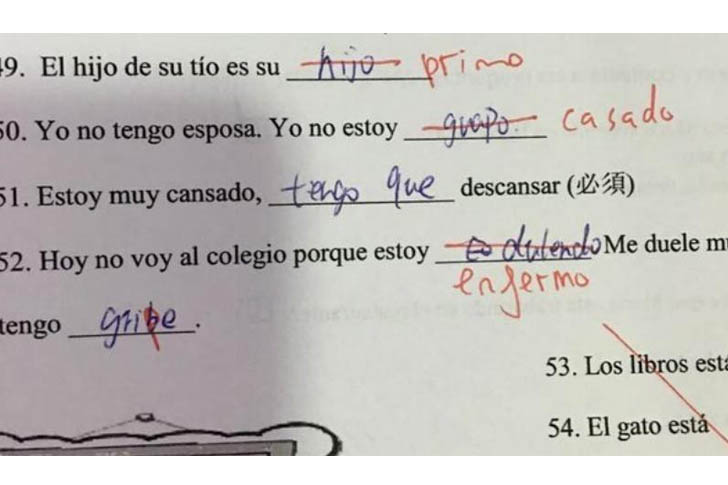 49. El hijo de su tío es su hijo primo
50. Yo no tengo esposa. Yo no estoy guapo. casado
51. Estoy muy cansado, tengo que descansar (必須)
52. Hoy no voy al colegio porque estoy dulendo Me duele m
enfermo
tengo gripe.
53. Los libros está
54. El gato está